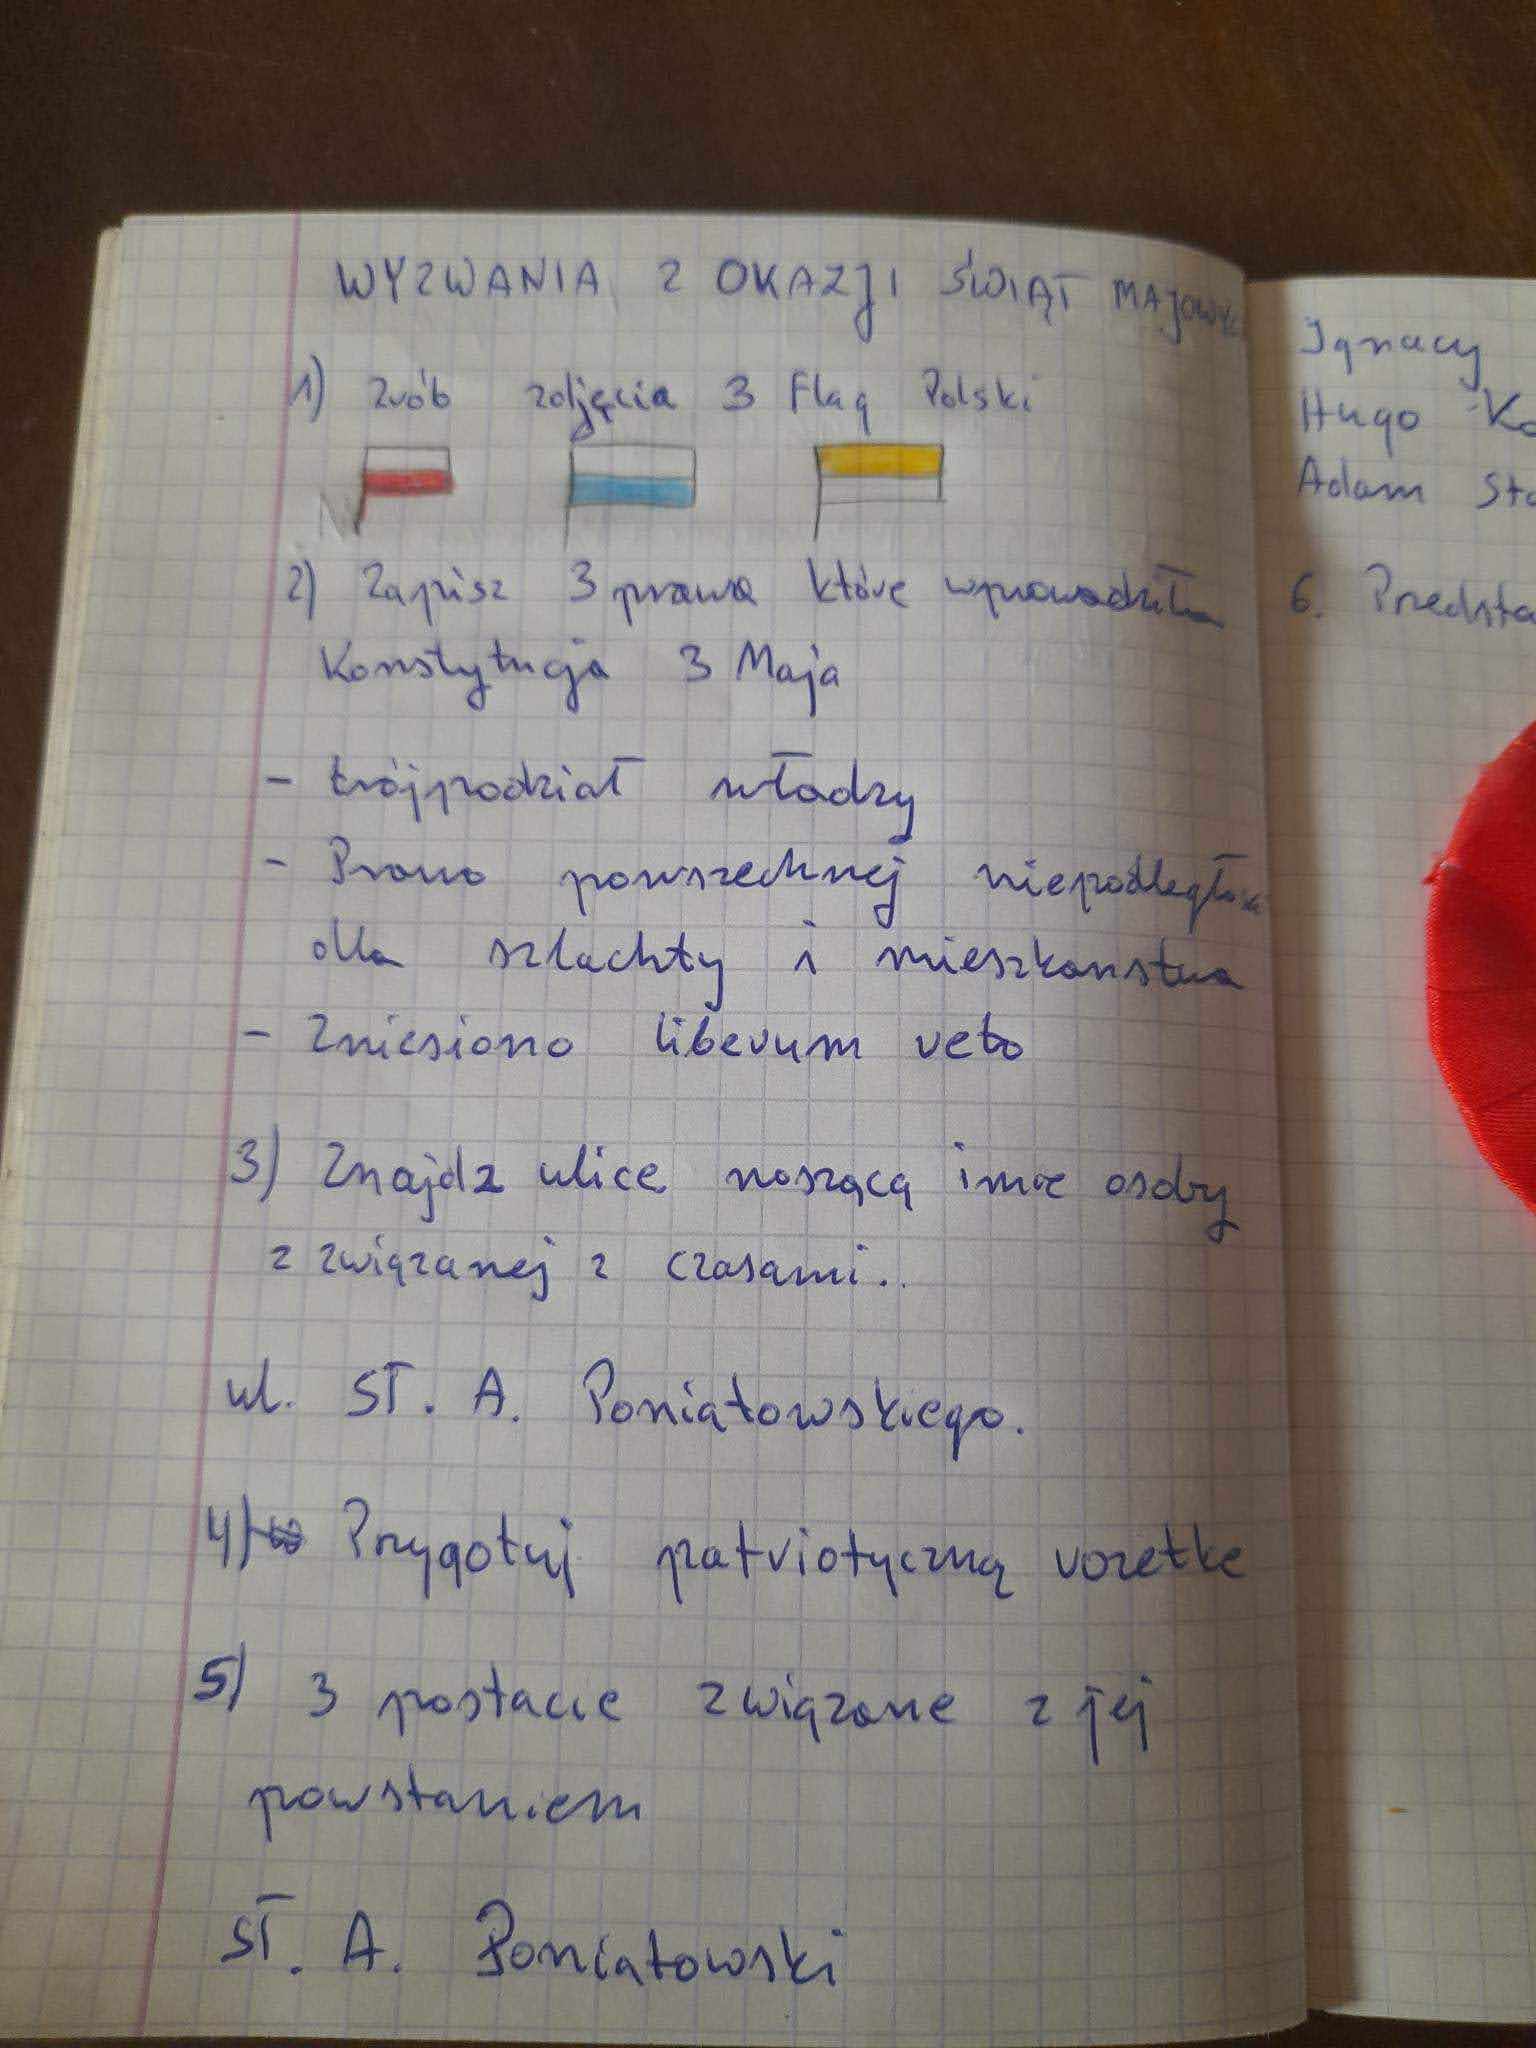 WYZWANIA Z OKAZJI ŚWIĄT MAJOWYC
1) Zrób zdjęcia 3 Flag Polski
2) Zapisz 3 prawa które wprowadziła
Konstytucja 3 Maja
- trójpodział władzy
- Prawo powszechnej niepodległości
dla szlachty i mieszkaństwa
- Zniesiono liberum veto
3) Znajdz ulice noszącą imie osoby
z związanej z czasami..
ul. ST. A. Poniatowskiego.
4) Przygotuj patriotyczną rozetke
5) 3 postacie związane z jej
powstaniem
ST. A. Poniatowski
Ignacy
Hugo Ko
Adam Sta
6. Przedsta